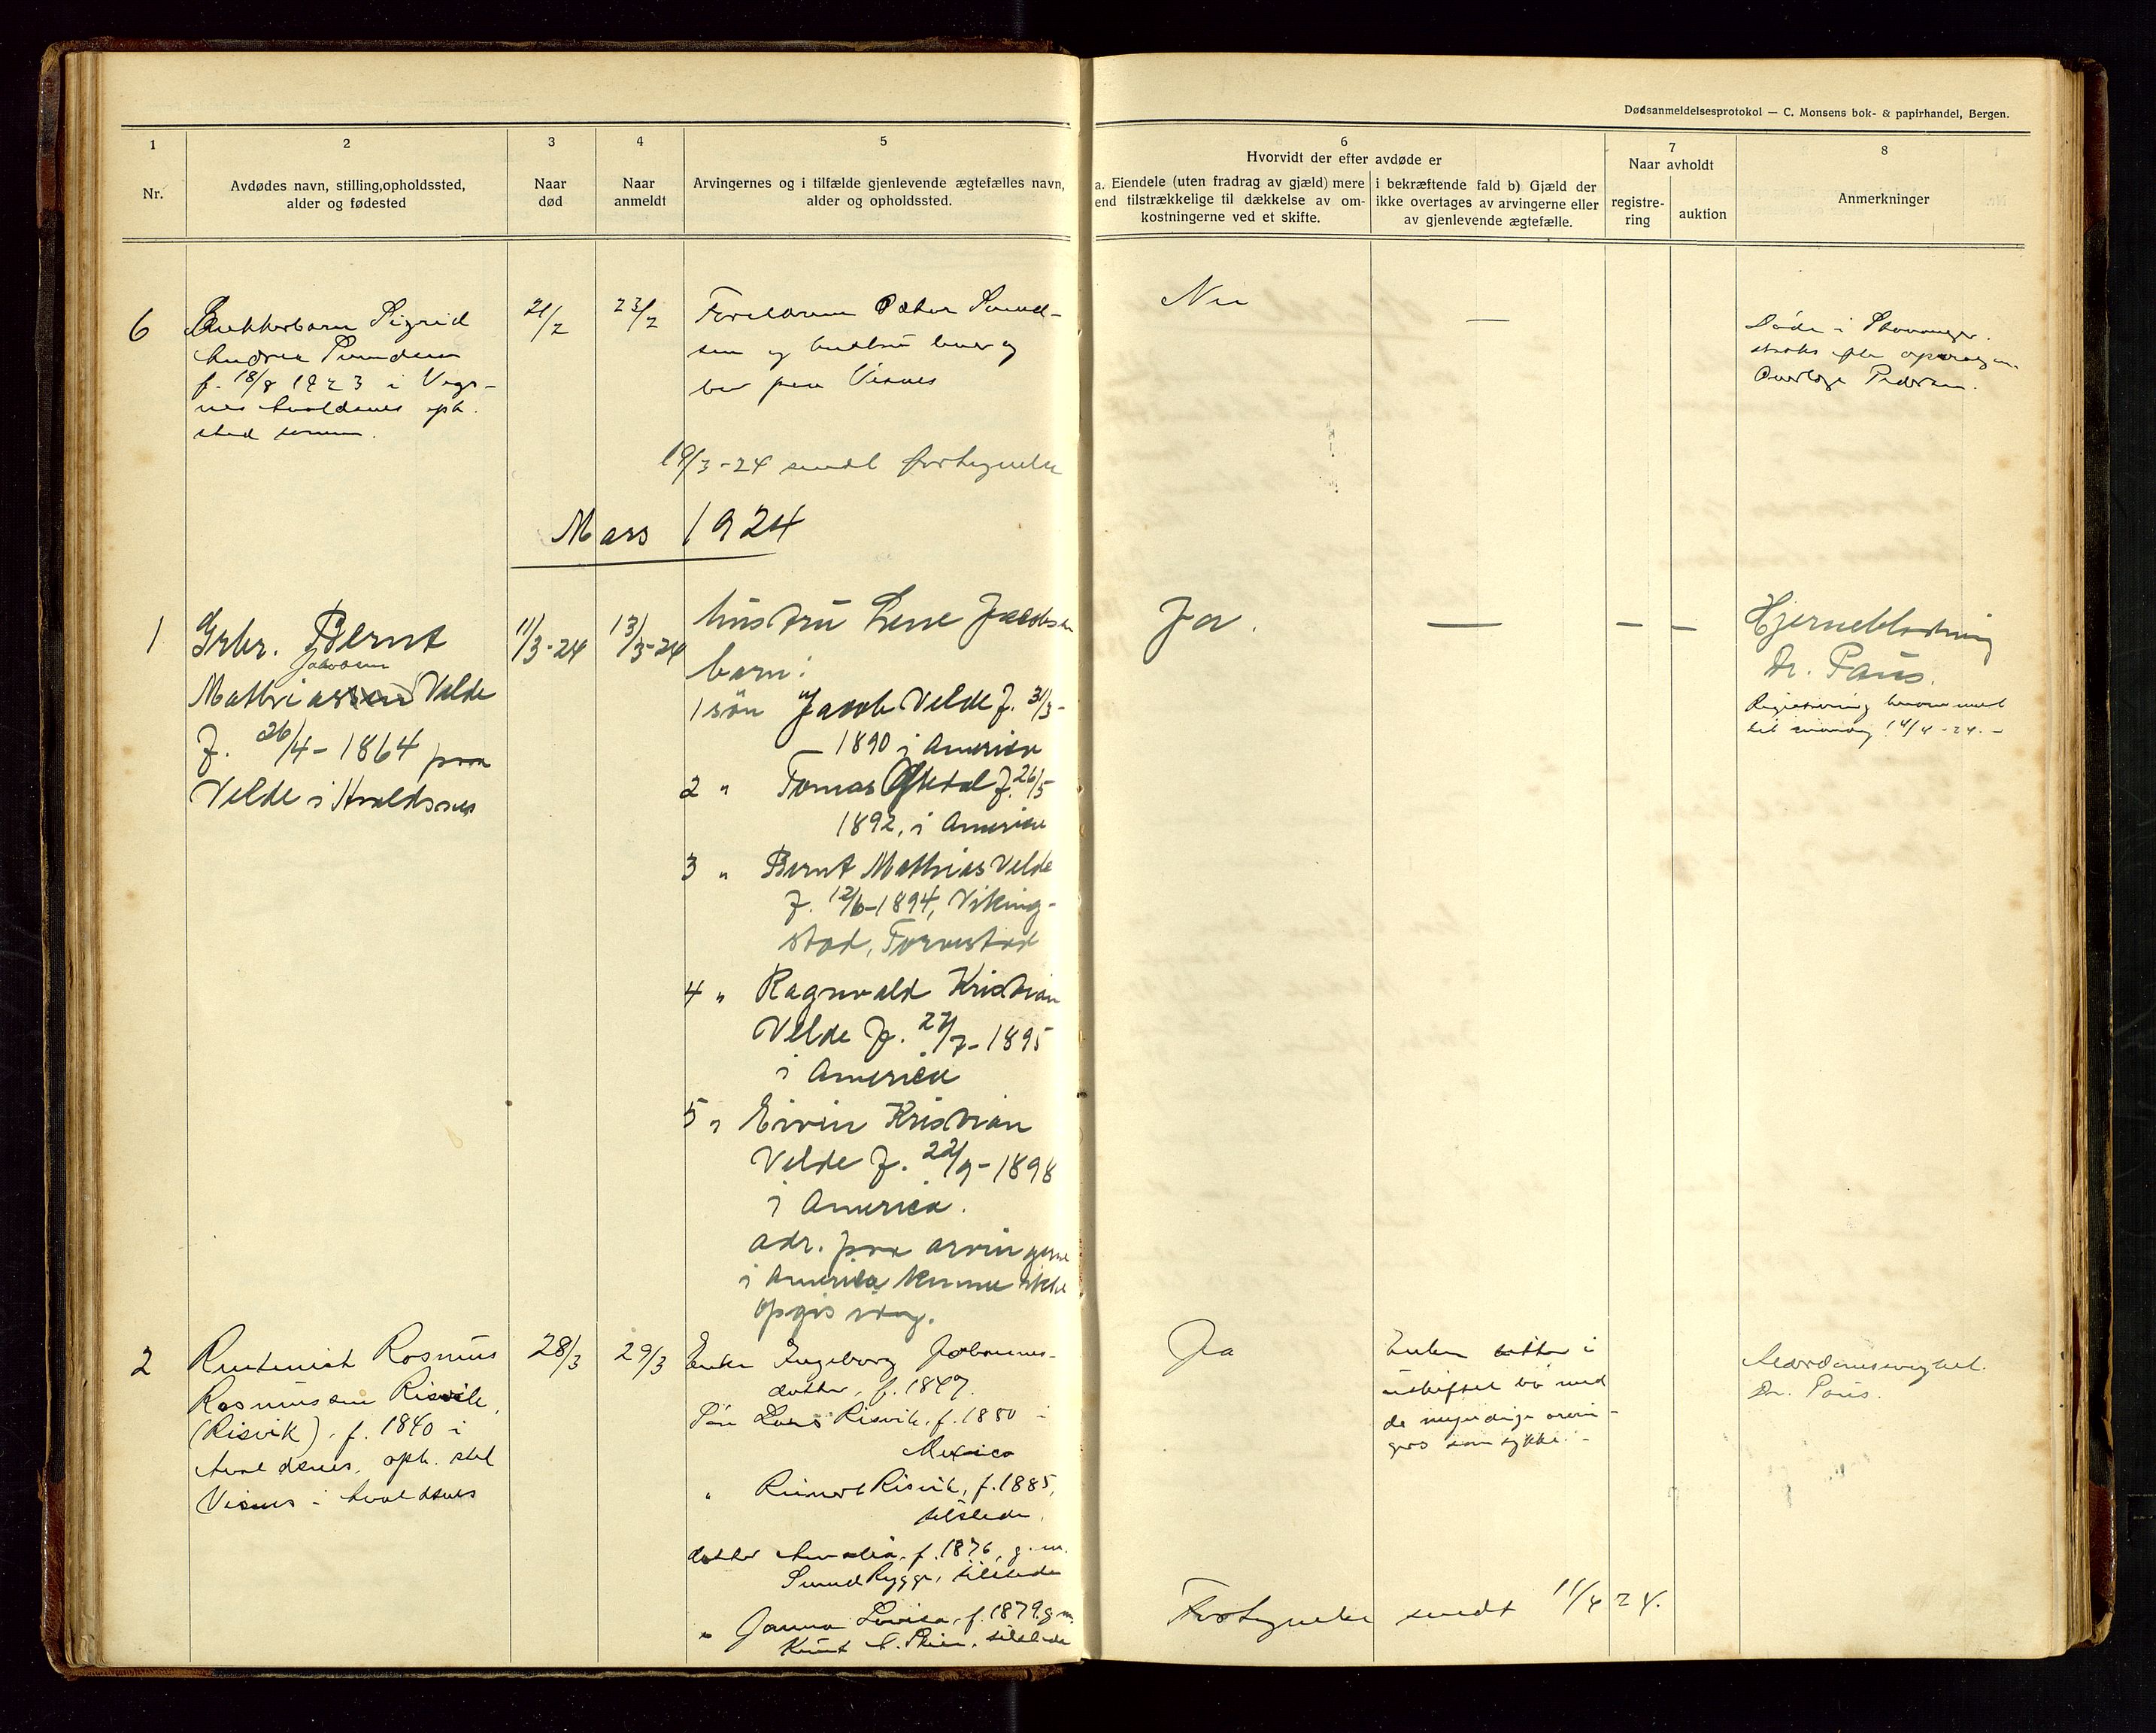 Dødsanmeldelsesprotokol — C. Monsens bok- & papirhandel, Bergen.
1
Nr.
2
Avdødes navn, stilling,opholdssted,
alder og fødested
3
Naar
død
4
Naar
anmeldt
5
Arvingernes og i tilfælde gjenlevende ægtefælles navn,
alder og opholdssted.
6
Hvorvidt der efter avdøde er
a. Eiendele (uten fradrag av gjæld) mere
end tilstrækkelige til dækkelse av om-
kostningerne ved et skifte.
i bekræftende fald b) Gjæld der
ikke overtages av arvingerne eller
av gjenlevende ægtefælle.
7
Naar avholdt
registre-
ring
auktion
8
Anmerkninger
6
Sigrid
Andrea
f. 18/8 1923 i Vegs-
nes Avaldsnes oph.
sted samme.
21/2
23/2
Forældrene Peter Saamund-
sen og hustru lever og
bor paa Visnes
Nei
—
Døde i Stavanger.
straks efter operasjon.
Overlæge Pedersen.
19/3-24 sendt fortegnelse
Mars 1924
1
Grbr. Bernt
Jakobsen
Mathias Velde
f. 26/4-1864 paa
Velde i Avaldsnes
11/3-24
13/3-24
hustru Lene Jacobsen
barn:
1 søn Jacob Velde f. 31/3-
— 1890 i America
2 " Tomas Oftedal f. 26/5
1892, i America
3 " Bernt Mathias Velde
f. 12/6-1894, Viking-
stad, Torvestad
4 " Ragnvald Kristian
Velde f. 27/7-1895
i America
5 " Eivin Kristian
Velde f. 22/9-1898
i America.
adr. paa arvingerne
i America kunne ikke
opgis idag.
Ja.
—
—
—
Hjerneblødning
Dr. Paus.
Registrering berammet
til mandag 14/4-24. -
2
Rasmus
Rasmussen Risvik,
(Risvik), f. 1840 i
Avaldsnes, oph. sted
Visnes i Avaldsnes
28/3
29/3
Enke Ingeborg Johannes-
datter, f. 1847.
Søn Lars Risvik, f. 1880 i
Mexico
" Reinert Risvik, f. 1885,
tilstede.
datter Amalia, f. 1876, g. m.
Rygge, tilstede
" Janna Lovisa, f. 1879, g. m.
Knut tilstede
Ja
Enken sitter i
uskiftet bo med
de myndige arvin-
gers samtykke. -
Alderdomssvaghet.
Dr. Paus.
Fortegnelse sendt 11/4 24.